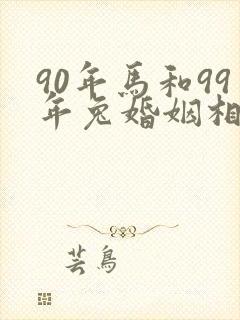 90年马和99
年兔婚姻相
芸鸟